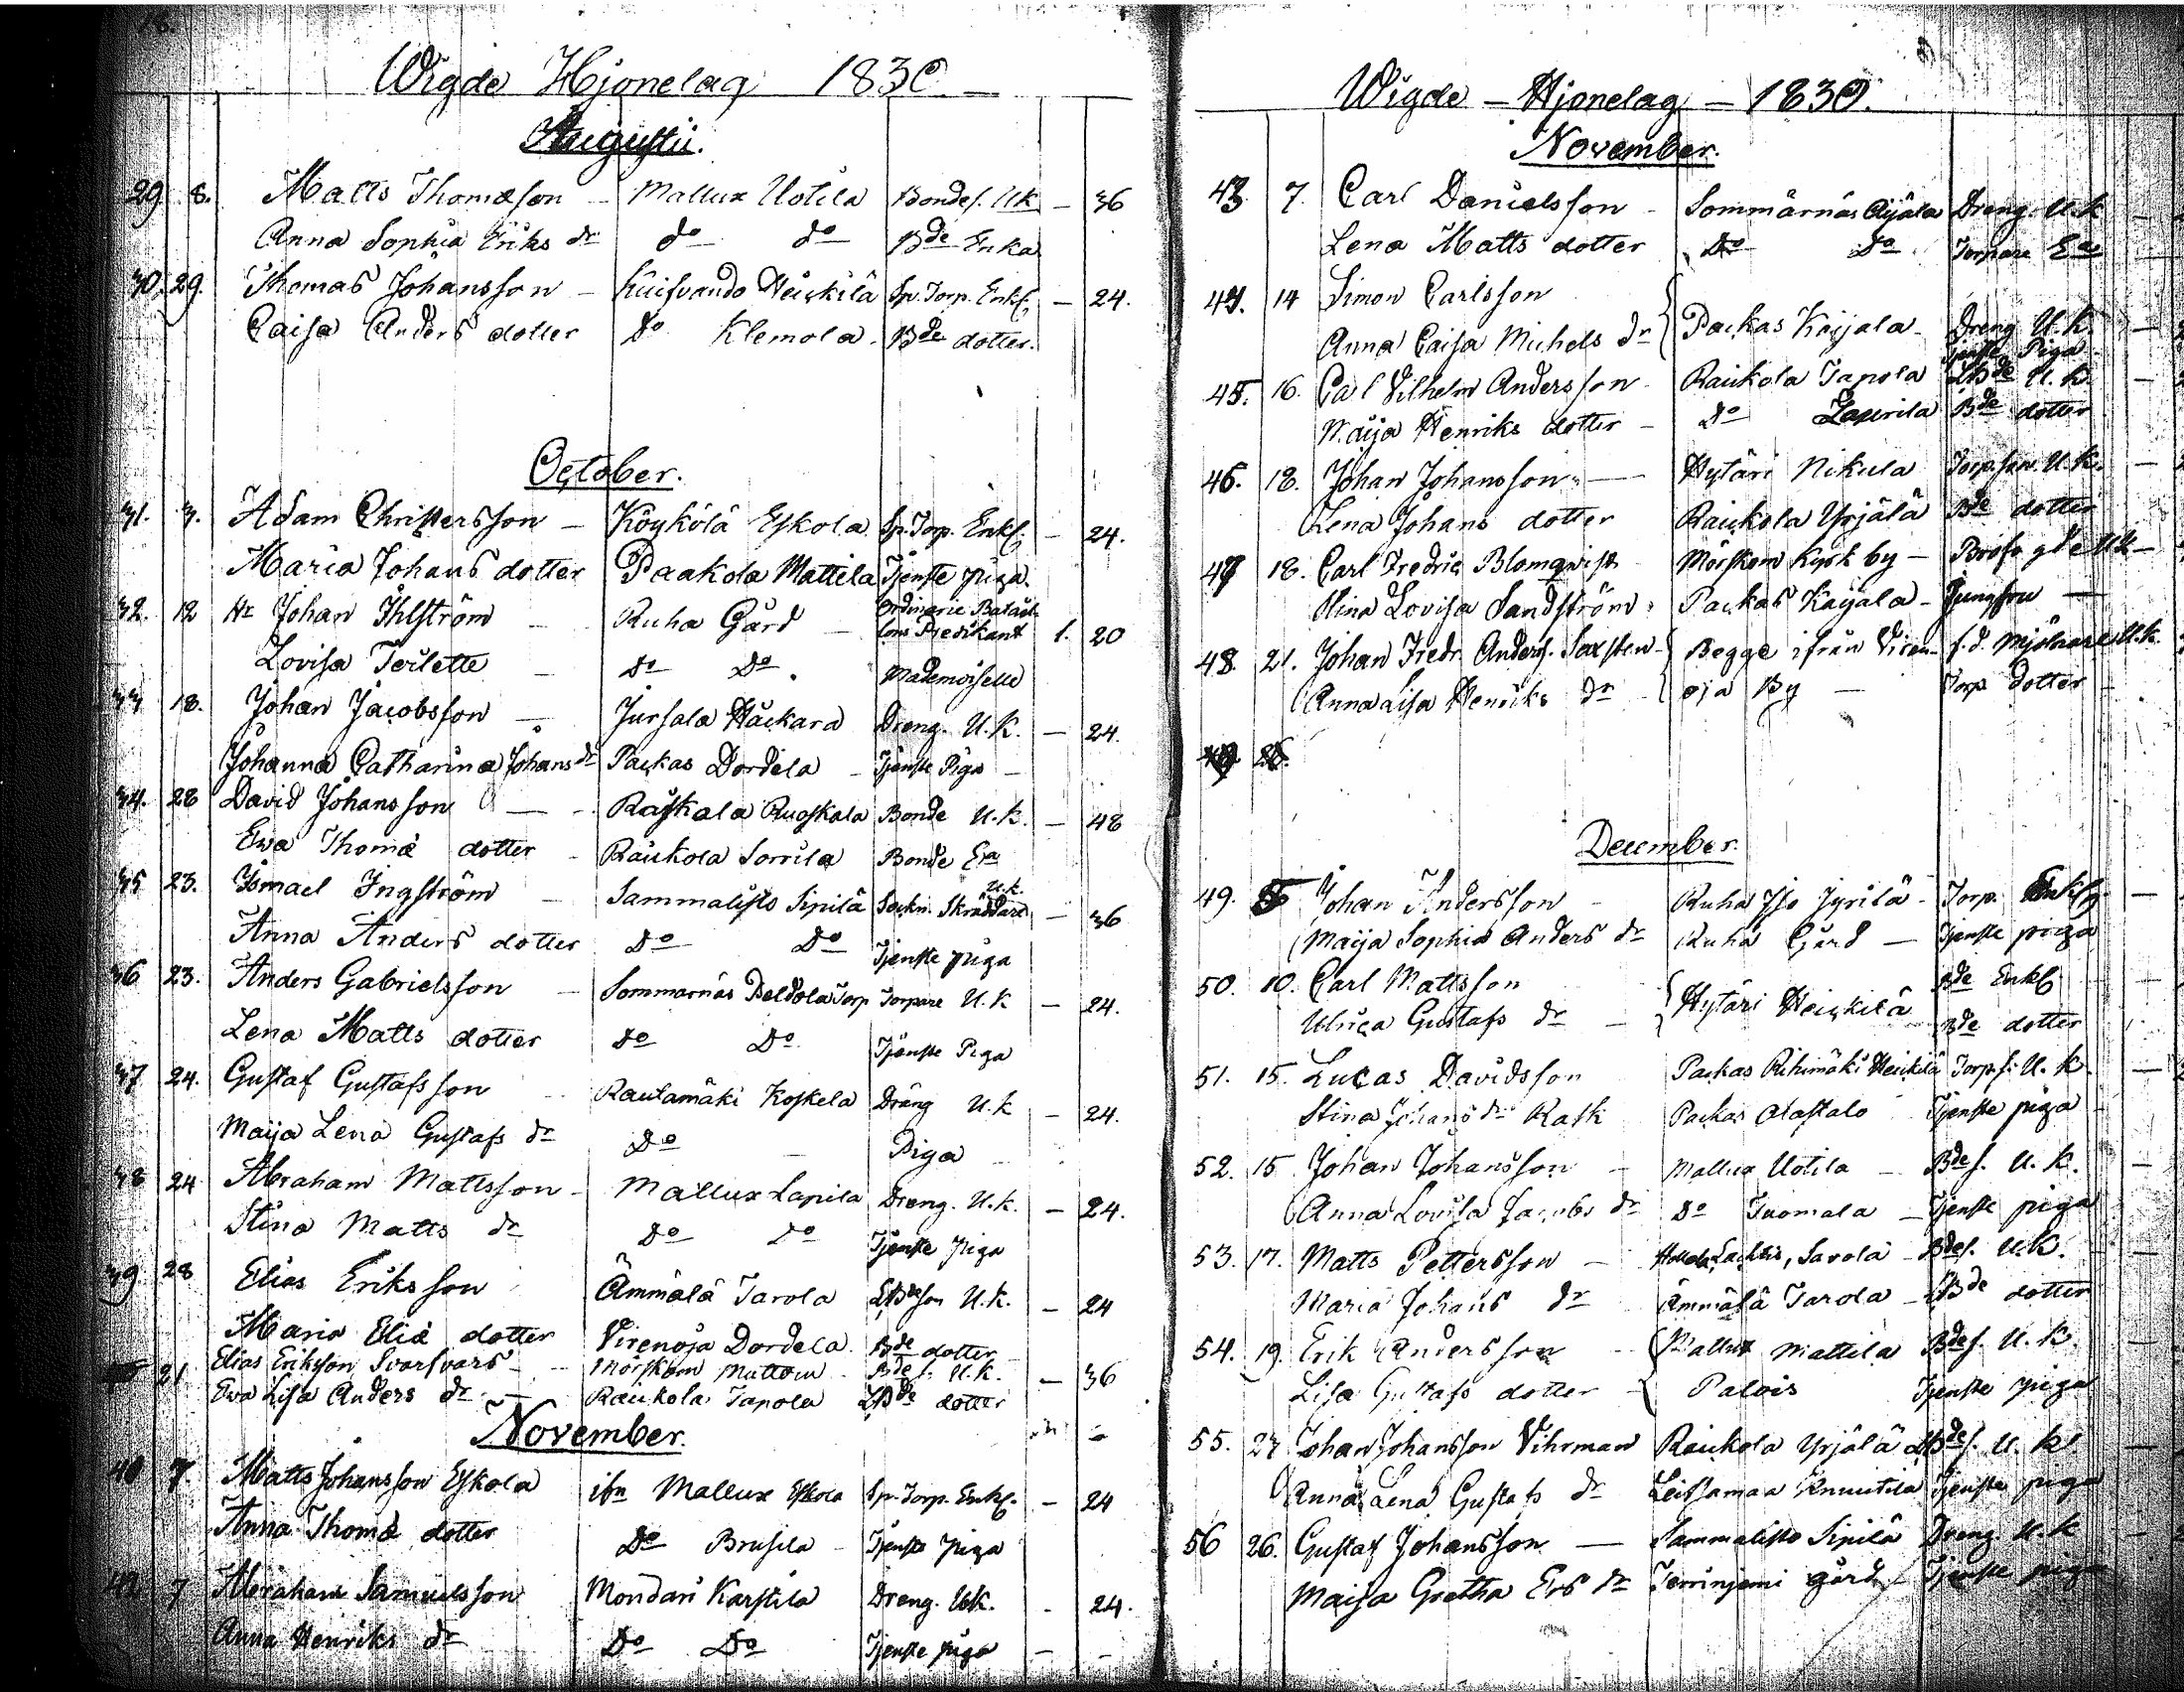 Wigde Hjonelag 1830.
Augustii.
29 8. Matts Thomæson - Mallux Uotila Bondes. UK - 36
Anna Sophia Eriks dr do do Bde Enka
30. 29. Thomas Johansson - Kuifvando Heickilä Sp. Torp. Enkl. - 24.
Caisa Anders dotter Do Klemola - Bde dotter.
October.
31. 3. Adam Christersson - Köykölä Eskola Sp. Torp. Enkl. - 24.
Maria Johans dotter Paakola Mattila Tjenste piga.
32. 12 Hr Johan Ihlström - Ruha Gård - Ordinarie Batail-
lons Predikant 1. 20
Lovisa Terlette - Do Do. Mademoiselle
33 18. Johan Jacobsson - Jursala Häckara Dreng. U.K. - 24.
Johanna Catharina Johans dr Packas Dordela - Tjenste Piga -
34. 28 David Johansson - Räskala Ruoskala Bonde U.K. - 48
Ewa Thomæ dotter - Raickola Sorrila Bonde Ea
35 23. Ismael Ingström - Sammalisto Sipilä Sockn. Skräddare U.K. - 36
Anna Anders dotter Do Do Tjenste piga
36 23. Anders Gabrielsson - Sommarnäs Beldola Torp Torpare U.K - 24.
Lena Matts dotter Do Do Tjenste Piga
37 24. Gustaf Gustafsson - Rautamäki Koskela Dräng U.K - 24.
Maija Lena Gustafs dr Do - Piga
38 24 Abraham Mattsson - Mallux Lapila Dreng. U.K. - 24.
Stina Matts dr Do Do Tjenste piga
39 28 Elias Eriksson Ämmälä Tarola LBdeson U.K. - 24
Maria Eliæ dotter Virenoja Dordela Bde dotter
21 Elias Eriksson Svarfvars - Mörskom Mattom - Bde s. U.K. - 36
Ewa Lisa Anders dr - Raickola Tapola LBde dotter
November.
40 7. Matts Johansson Eskola ifn Mallux Eskola Sp. Torp. Enkl. - 24
Anna Thomæ dotter Do Brusila - Tjenste piga
42 7 Abraham Samuelsson Mondari Karstila Dreng. UK. - 24.
Anna Henriks dr Do Do Tjenste piga -
Wigde - Hjonelag - 1830.
November.
43 7. Carl Danielsson - Sommärnäs Äijälä Dreng. U.K -
Lena Matts dotter Do Do. Torpare Ea
44. 14 Simon Carlsson
Anna Caisa Michels dr Packas Kaijala - Dreng U.K. -
Tjenste Piga
45. 16. Carl Vilhelm Andersson - Raickola Tapola LBde U.K. -
Maija Henriks dotter - Do Laurila Bde dotter
46. 18. Johan Johansson - Hytäri Nikula Torp.son. U.K. -
Lena Johans dotter Raickola Yrjälä Bde dotter
47 18. Carl Fredric Blomqwist Mörskom Kyrk by -
Stina Lovisa Sandström Packas Kaijala - Jungfru -
48. 21. Johan Fredr. Anders. Saxsten - Begge ifrån Viren- f.d. Mjölnare U.K.
Anna Lisa Henriks dr - oja By - Torp dotter -
December.
49. Johan Andersson - Ruha Iso Jyrilä - Torp. Enkl. -
Maija Sophia Anders dr Ruha Gård - Tjenste piga
50. 10. Carl Mattsson Bde Enkl
Ulrica Gustafs dr - Hytäri Heickilä Bde dotter
51. 15. Lucas Davidsson Packas Rihimäki Heickilä Torp.s. U.K. -
Stina Johans dr Rask Packas Alastalo Tjenste piga -
52. 15 Johan Johansson - Mallux Uotila - Bde s. U.K. -
Anna Lovisa Jacobs dr Do Tuomala - Tjenste piga
53. 17. Matts Pettersson - Hollola, Lachtis, Sarola - Bdes. U.K.
Maria Johans dr Ämmälä Tarola - LBde dotter
54. 19. Erik Andersson - Mallux Mattila Bdes. U.K.
Lisa Gustafs dotter - Palois Tjenste piga
55. 27 Johan Johansson Vihrman Raickola Yrjälä Bde s. U.K. -
Anna Lena Gustafs dr Leitsamaa Knuutila Tjenste piga
56 26. Gustaf Johansson - Sammalisto Sipilä Dreng U.K -
Maija Gretha Ers dr Terrinjemi gård - Tjenste piga